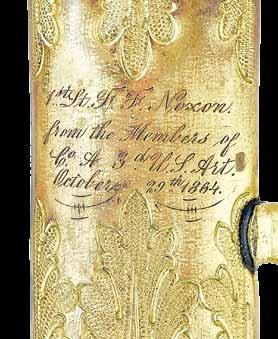 1st Lt. F. F. Noxon.
from the Members of
Co. A 3d U.S. Art.
October, 29th 1864.